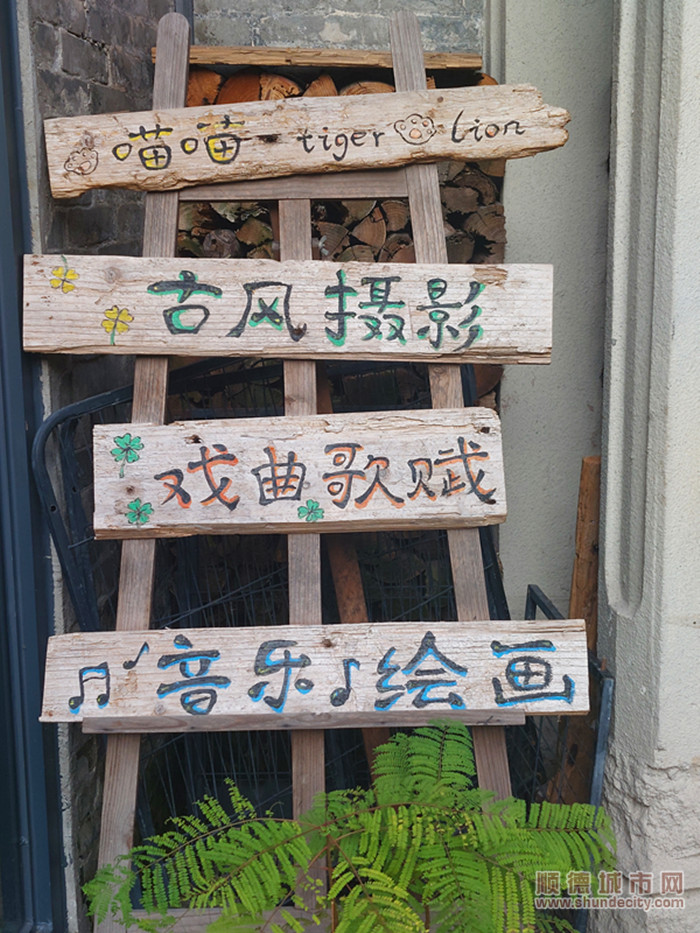 喵喵 tiger lion
古风摄影
戏曲歌赋
音乐绘画
顺德城市网
www.shundecity.com